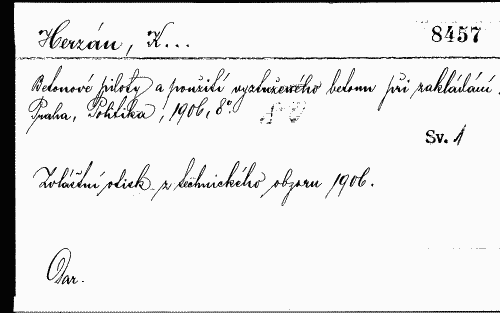 Herzán, K...
8457
Betonové piloty a použití vyztuženého betonu při zakládání.
Praha, Politika, 1906, 8°.
Sv. 1
Zvláštní otisk z technického obzoru 1906.
Dar.